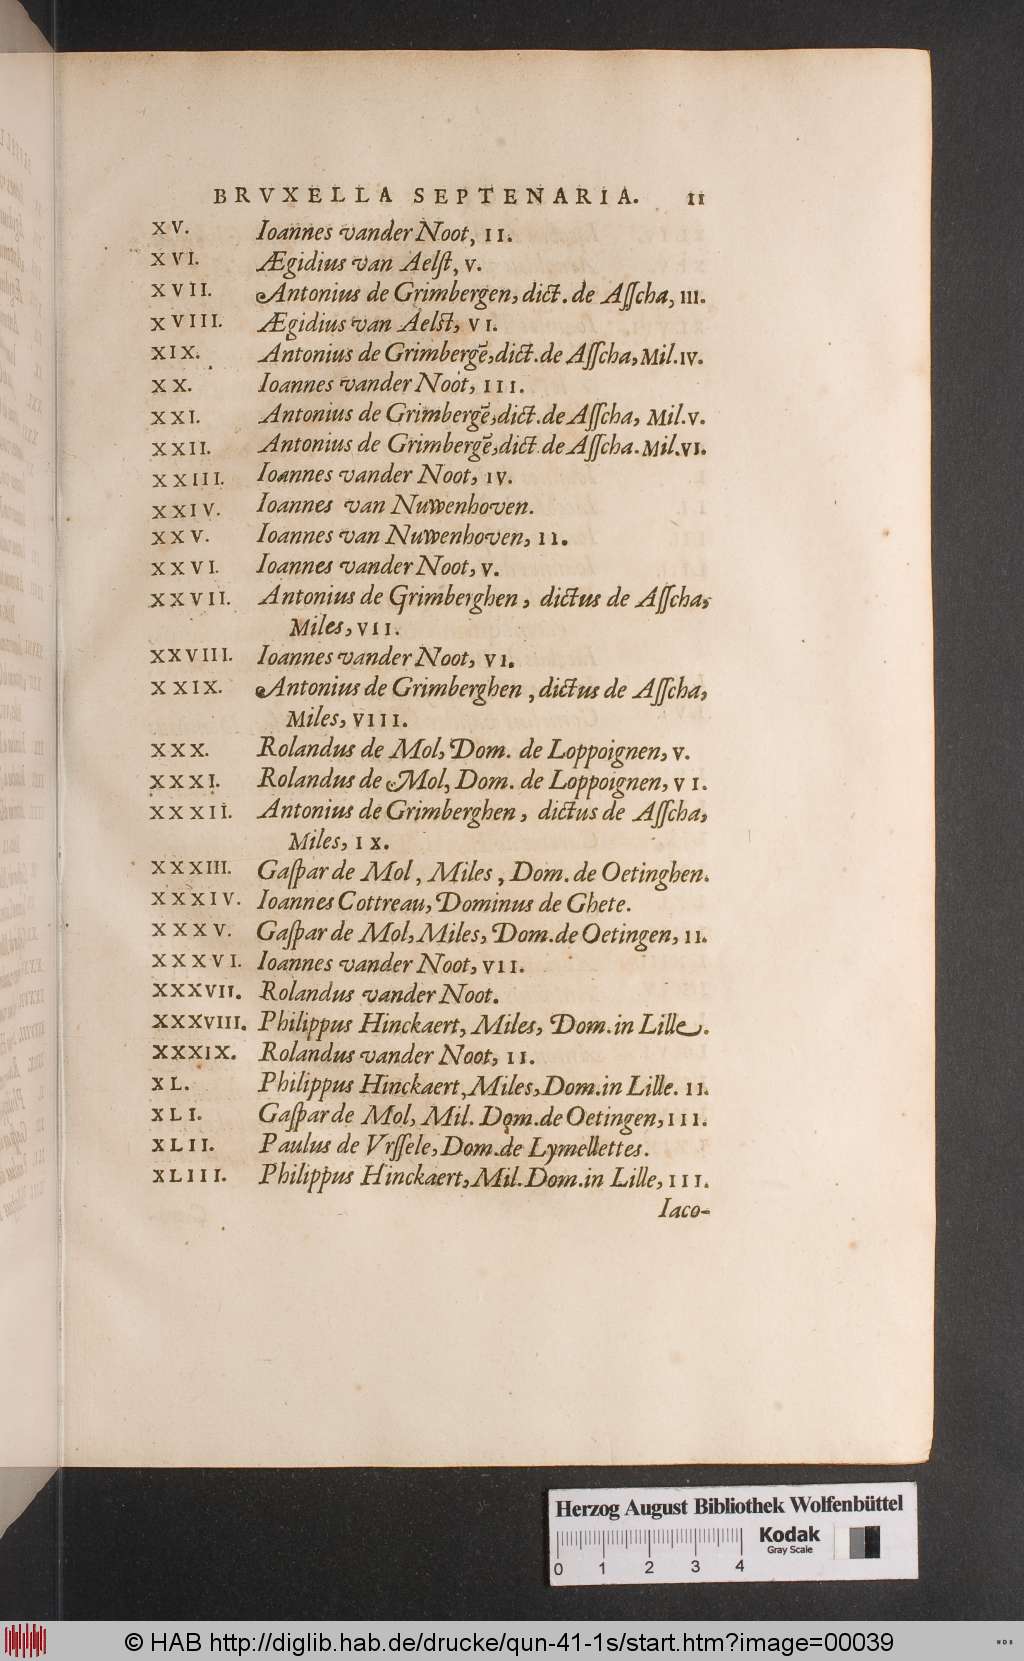 BRVXELLA SEPTENARIA. 11
XV. Ioannes vander Noot, II.
XVI. Ægidius van Aelſt, V.
XVII. Antonius de Grimbergen, dict. de Aſſcha, III.
XVIII. Ægidius van Aelst, VI.
XIX. Antonius de Grimbergē, dict. de Aſſcha, Mil. IV.
XX. Ioannes vander Noot, III.
XXI. Antonius de Grimbergē, dict. de Aſſcha, Mil. V.
XXII. Antonius de Grimbergē, dict de Aſſcha. Mil. VI.
XXIII. Ioannes vander Noot, IV.
XXIV. Ioannes van Nuwenhoven.
XXV. Ioannes van Nuwenhoven, II.
XXVI. Ioannes vander Noot, V.
XXVII. Antonius de Grimberghen, dictus de Aſſcha,
Miles, VII.
XXVIII. Ioannes vander Noot, VI.
XXIX. Antonius de Grimberghen, dictus de Aſſcha,
Miles, VIII.
XXX. Rolandus de Mol, Dom. de Loppoignen, V.
XXXI. Rolandus de Mol, Dom. de Loppoignen, VI.
XXXII. Antonius de Grimberghen, dictus de Aſſcha,
Miles, IX.
XXXIII. Gaſpar de Mol, Miles, Dom. de Oetinghen.
XXXIV. Ioannes Cottreau, Dominus de Ghete.
XXXV. Gaſpar de Mol, Miles, Dom. de Oetingen, II.
XXXVI. Ioannes vander Noot, VII.
XXXVII. Rolandus vander Noot.
XXXVIII. Philippus Hinckaert, Miles, Dom. in Lille.
XXXIX. Rolandus vander Noot, II.
XL. Philippus Hinckaert, Miles, Dom. in Lille. II.
XLI. Gaſpar de Mol, Mil. Dom. de Oetingen, III.
XLII. Paulus de Vrſſele, Dom. de Lymellettes.
XLIII. Philippus Hinckaert, Mil. Dom. in Lille, III.
Iaco-
Herzog August Bibliothek Wolfenbüttel
Kodak
Gray Scale
0 1 2 3 4
© HAB http://diglib.hab.de/drucke/qun-41-1s/start.htm?image=00039